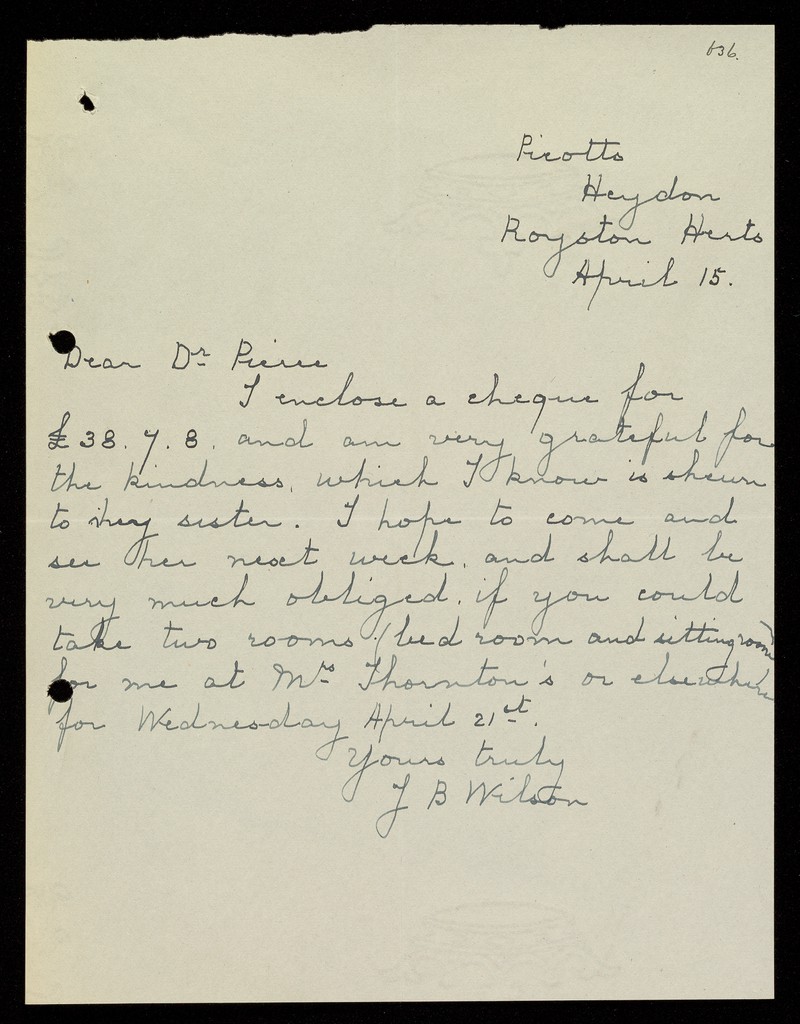 636.
Picotts
Heydon
Royston Herts
April 15.
Dear Dr Pierce
I enclose a cheque for
£38.7.8. and am very grateful for
the kindness, which I know is shewn
to my sister. I hope to come and
see her next week, and shall be
very much obliged, if you could
take two rooms (bed room and sitting room)
for me at Mrs Thornton's or elsewhere
for Wednesday April 21st.
Yours truly
J B Wilson